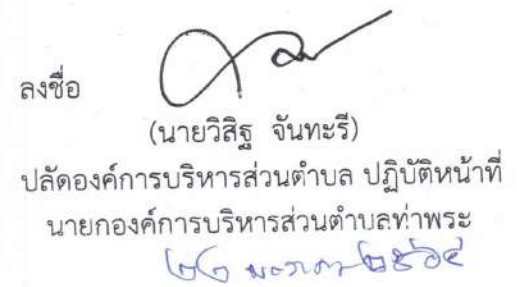 ลงชื่อ
(นายวิสิฐ จันทะรี)
ปลัดองค์การบริหารส่วนตำบล ปฏิบัติหน้าที่
นายกองค์การบริหารส่วนตำบลท่าพระ
๒๖ มกราคม ๒๕๖๔